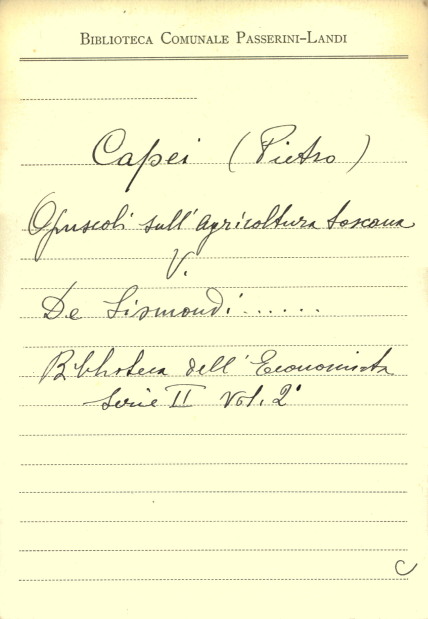 BIBLIOTECA COMUNALE PASSERINI-LANDI
Capei (Pietro)
Opuscoli sull'agricoltura toscana
V.
De Sismondi ......
Biblioteca dell'Economista
Serie II Vol. 2°
C